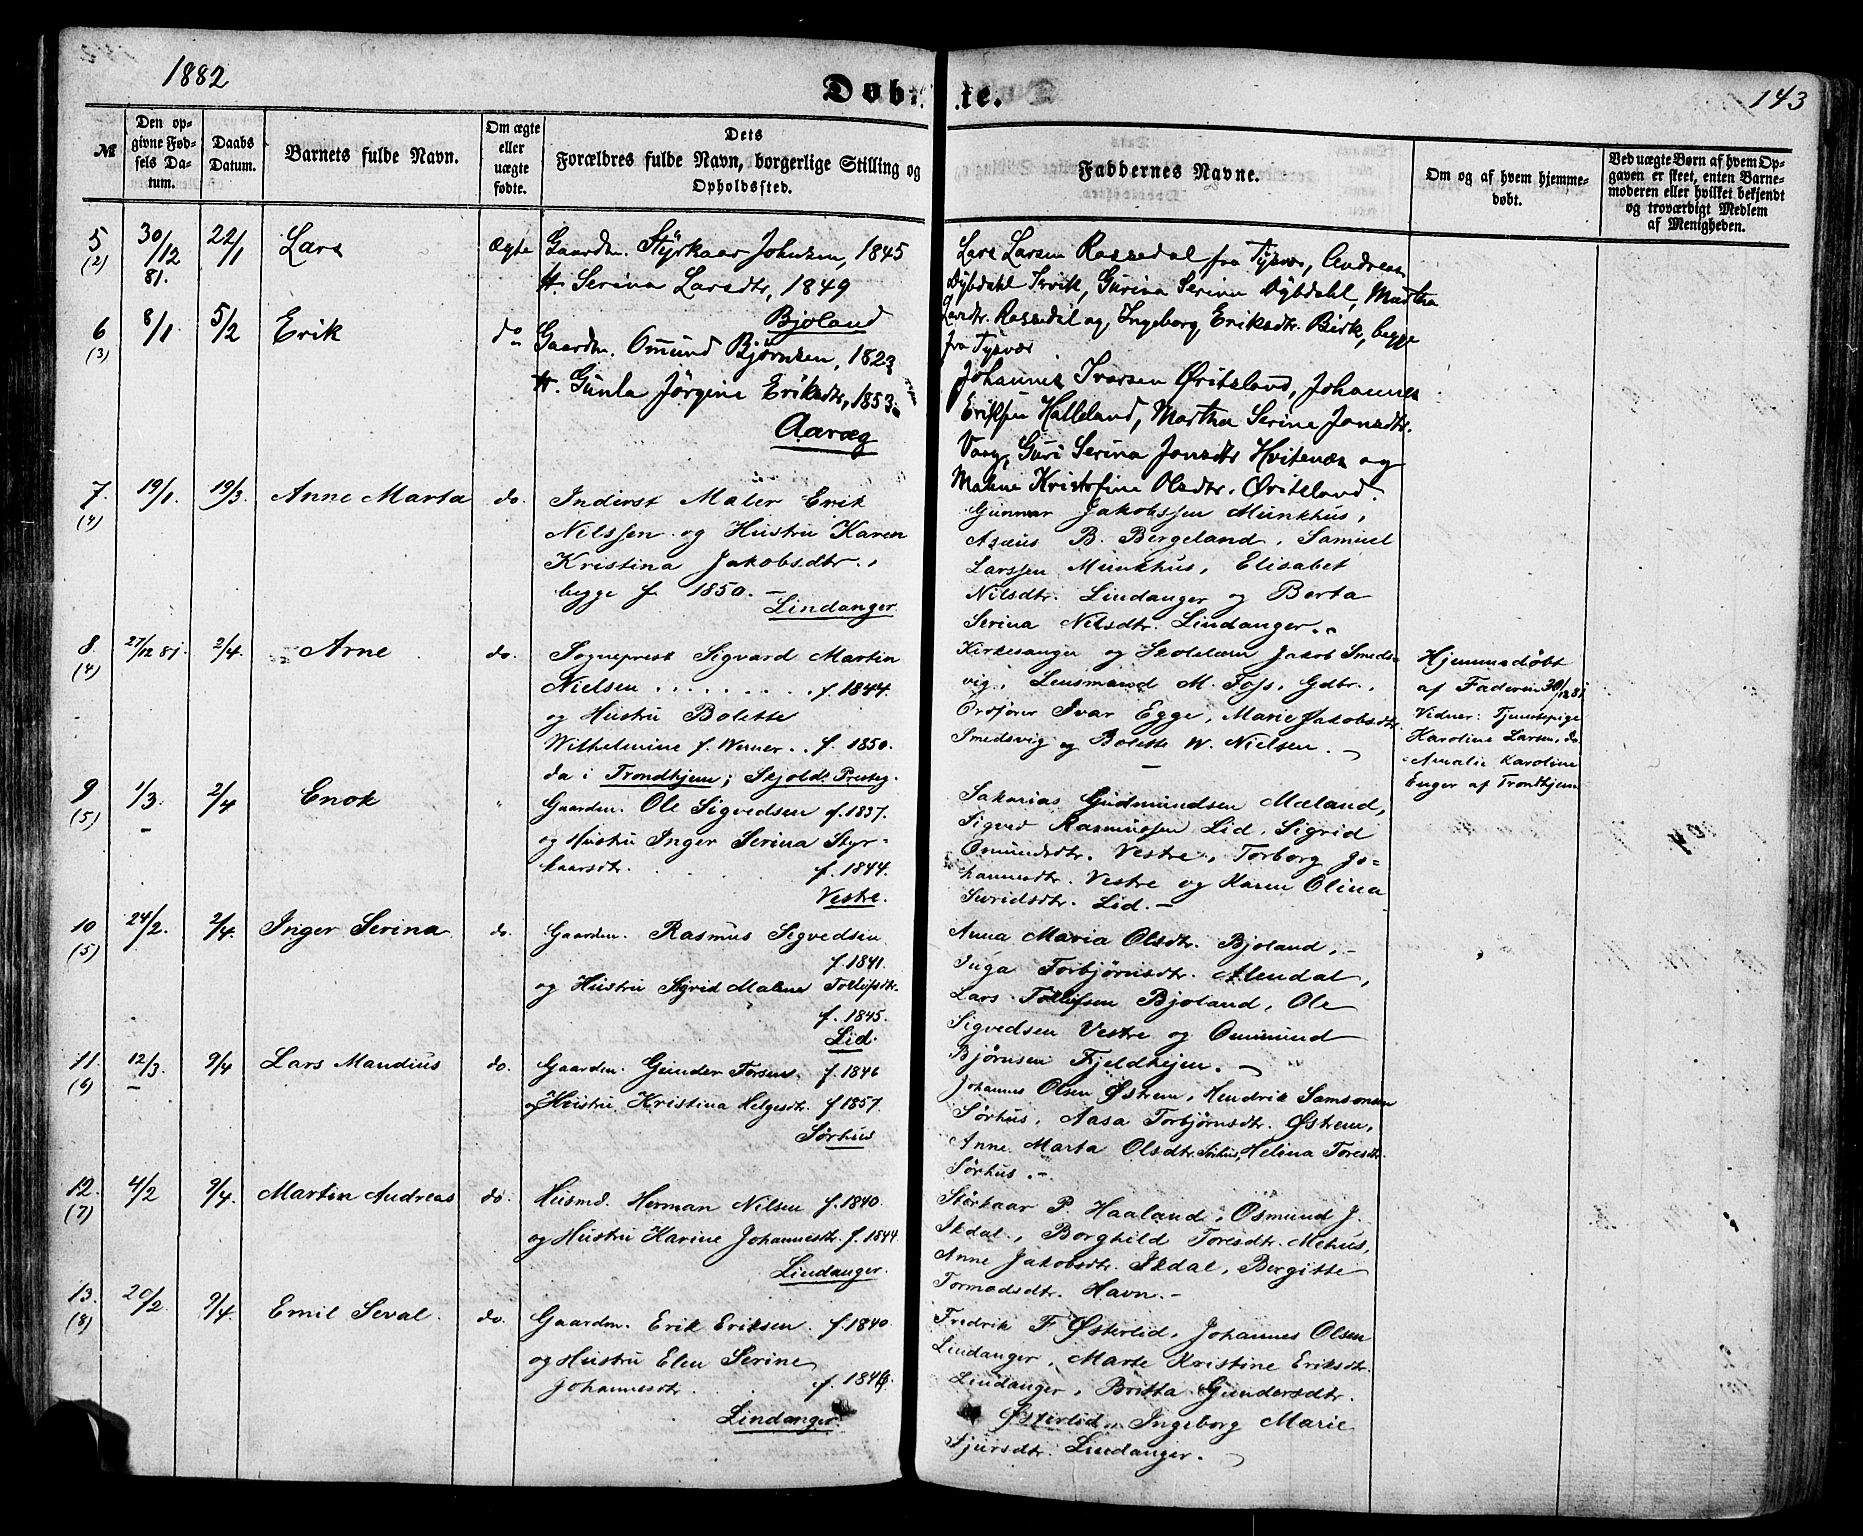 1882
Døbte.
143
№
Den opgivne Fødsels Datum.
Daabs Datum.
Barnets fulde Navn.
Om ægte eller uægte fødte.
Dets Forældres fulde Navn, borgerlige Stilling og Opholdssted.
Faddernes Navne.
Om og af hvem hjemmedøbt.
Ved uægte Børn af hvem Opgaven er skeet, enten Barnemoderen eller hvilket bekjendt og troværdigt Medlem af Menigheden.
5 (2) 30/12 81. 22/1 Lars Ægte
Gaardm. Styrkaar Johnsen, 1845
H. Serina Larsdtr, 1849
Bjoland
Lars Larsen Rossedal fra Tysvær, Andreas
Dybdahl Tvvik, Gurina Serina Dybdahl, Martha
Larsdtr. Rossedal og Ingeborg Eriksdtr. Birk, begge
fra Tysvær
6 (3) 8/1 5/2 Erik do
Gaardm. Omund Bjørnsen, 1823
H. Gunla Jørgine Eriksdtr, 1853
Aaræg
Johannes Ivarsen Øvitsland, Johannes
Eriksen Halleland, Martha Serine Jonsdtr.
Vaag, Guri Serina Jonsdtr Hvitenæs og
Malene Kristofine Olsdtr. Øvitsland.
7. (4) 19/1. 19/3. Anne Marta do.
Inderst Maler Erik
Nilssen og Hustru Karen
Kristina Jakobsdtr.,
begge f. 1850. –
Lindanger
Gunnar Jakobssen Munkhus,
Asæus B. Bergeland, Samuel
Larssen Munkhus, Elisabet
Nilsdtr. Lindanger og Berta
Serina Nilsdtr. Lindanger.
8. (4) 27/12 81. 2/4. Arne do.
Sogneprest Sigvard Martin
Nielsen . . . . . . . . f. 1844.
og Hustru Bolette
Wilhelmine f. Werner . . f. 1850.
da i Trondhjem; Skjolds Presteg.
Kirkesanger og Skolelærer Jakob Smeds-
vig, Lensmand M. Foss, Gdbr.,
Ordfører Ivar Egge, Marie Jakobsdtr.
Smedsvig og Bolette W. Nielsen.
Hjemmedøbt
af Faderen 30/12 81
Vidner: Tjenstepige
Karoline Larsen, do
Amalie Karoline
Enger af Trondhjem
9 (5) 1/3. 2/4 Enok "
Gaardm. Ole Sigvedsen f. 1837.
og Hustru Inger Serina Styr-
kaarsdtr. f. 1844.
Vestre.
Sakarias Gudmundsen Mæland,
Sigved Rasmussen Lid, Sigrid
Omundsdtr. Vestre, Torborg Jo-
hannesdtr. Vestre og Karen Olina
Sivridsdtr. Lid. –
10 (5) 24/2. 2/4. Inger Serina do.
Gaardm. Rasmus Sigvedsen
f. 1841.
og Hustru Sigrid Malene Tollefsdtr.
f. 1845.
Lid.
Anna Maria Olsdtr. Bjoland, –
Inga Torbjørnsdtr. Alendal,
Lars Tollefsen Bjoland, Ole
Sigvedsen Vestre og Ommund
Bjørnsen Fjeldhejen. –
11. (6) 12/3. 9/4 Lars Mandius do.
Gaardm. Gunder Torsen f. 1846
og Hustru Kristina Helgesdtr. f 1857.
Sørhus
Johannes Olsen Østrem, Hendrik Samsonsen
Sørhus, Aasa Torbjørnsdtr. Østrem,
Anne Marta Olsdtr. Sørhus, Helina Toresdtr.
Sørhus. –
12. (7) 4/2 9/4. Martin Andreas do.
Husmd. Herman Nilsen f. 1840.
og Hustru Karine Johannesdtr. f. 1844.
Lindanger.
Størkaar P. Haaland, Osmund J.
Ikdal, Borghild Toresdtr. Mehus,
Anne Jakobsdtr. Ikdal, Bergitte
Tormodsdtr. Havn. –
13. (8) 20/2. 9/4. Emil Seval do.
Gaardm. Erik Eriksen f. 1840
og Hustru Elen Serine
Johannesdtr. f. 1846.
Lindanger.
Fredrik F. Østerlid, Johannes Olsen
Lindanger, Marte Kristine Eriksdtr.
Lindanger, Britta Gundersdtr.
Østerlid, Ingeborg Marie
Sjursdtr. Lindanger.